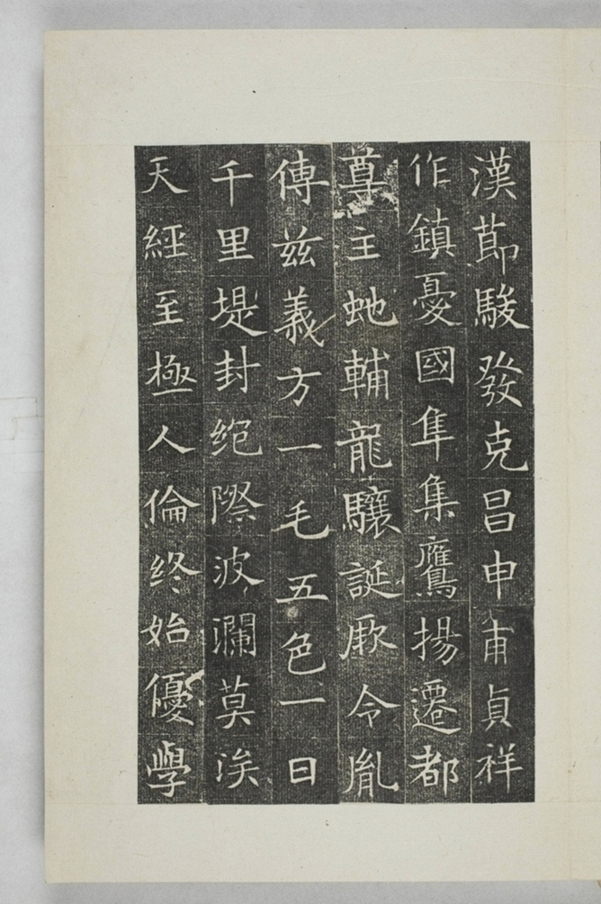 漢節駿發克昌申甫貞祥
作鎮憂國隼集鷹揚遷都
尊主虵輔龍驤誕厥令胤
傳兹義方一毛五色一日
千里堤封絕際波瀾莫涘
天經至極人倫終始優學